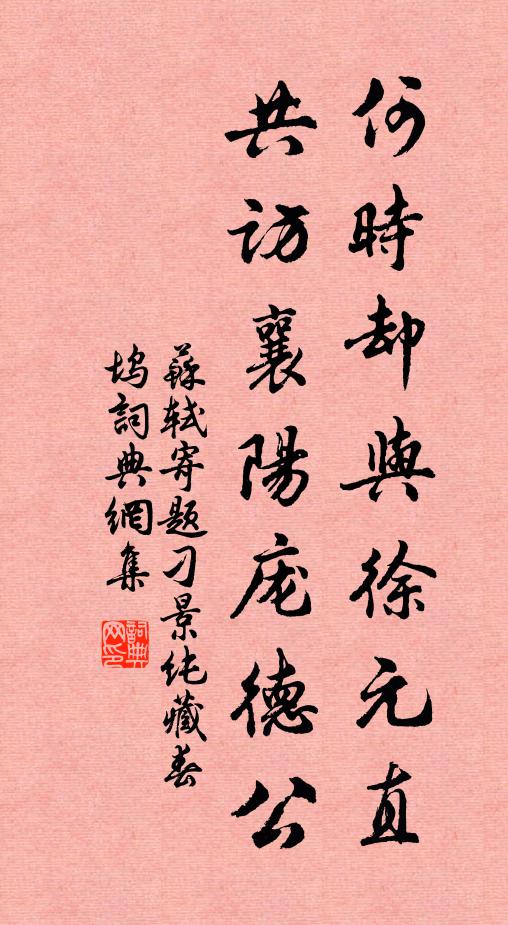 何時却與徐元直
共訪襄陽庞德公
蘇軾寄題刁景纯藏春
塢詞典網集
詞典
网印